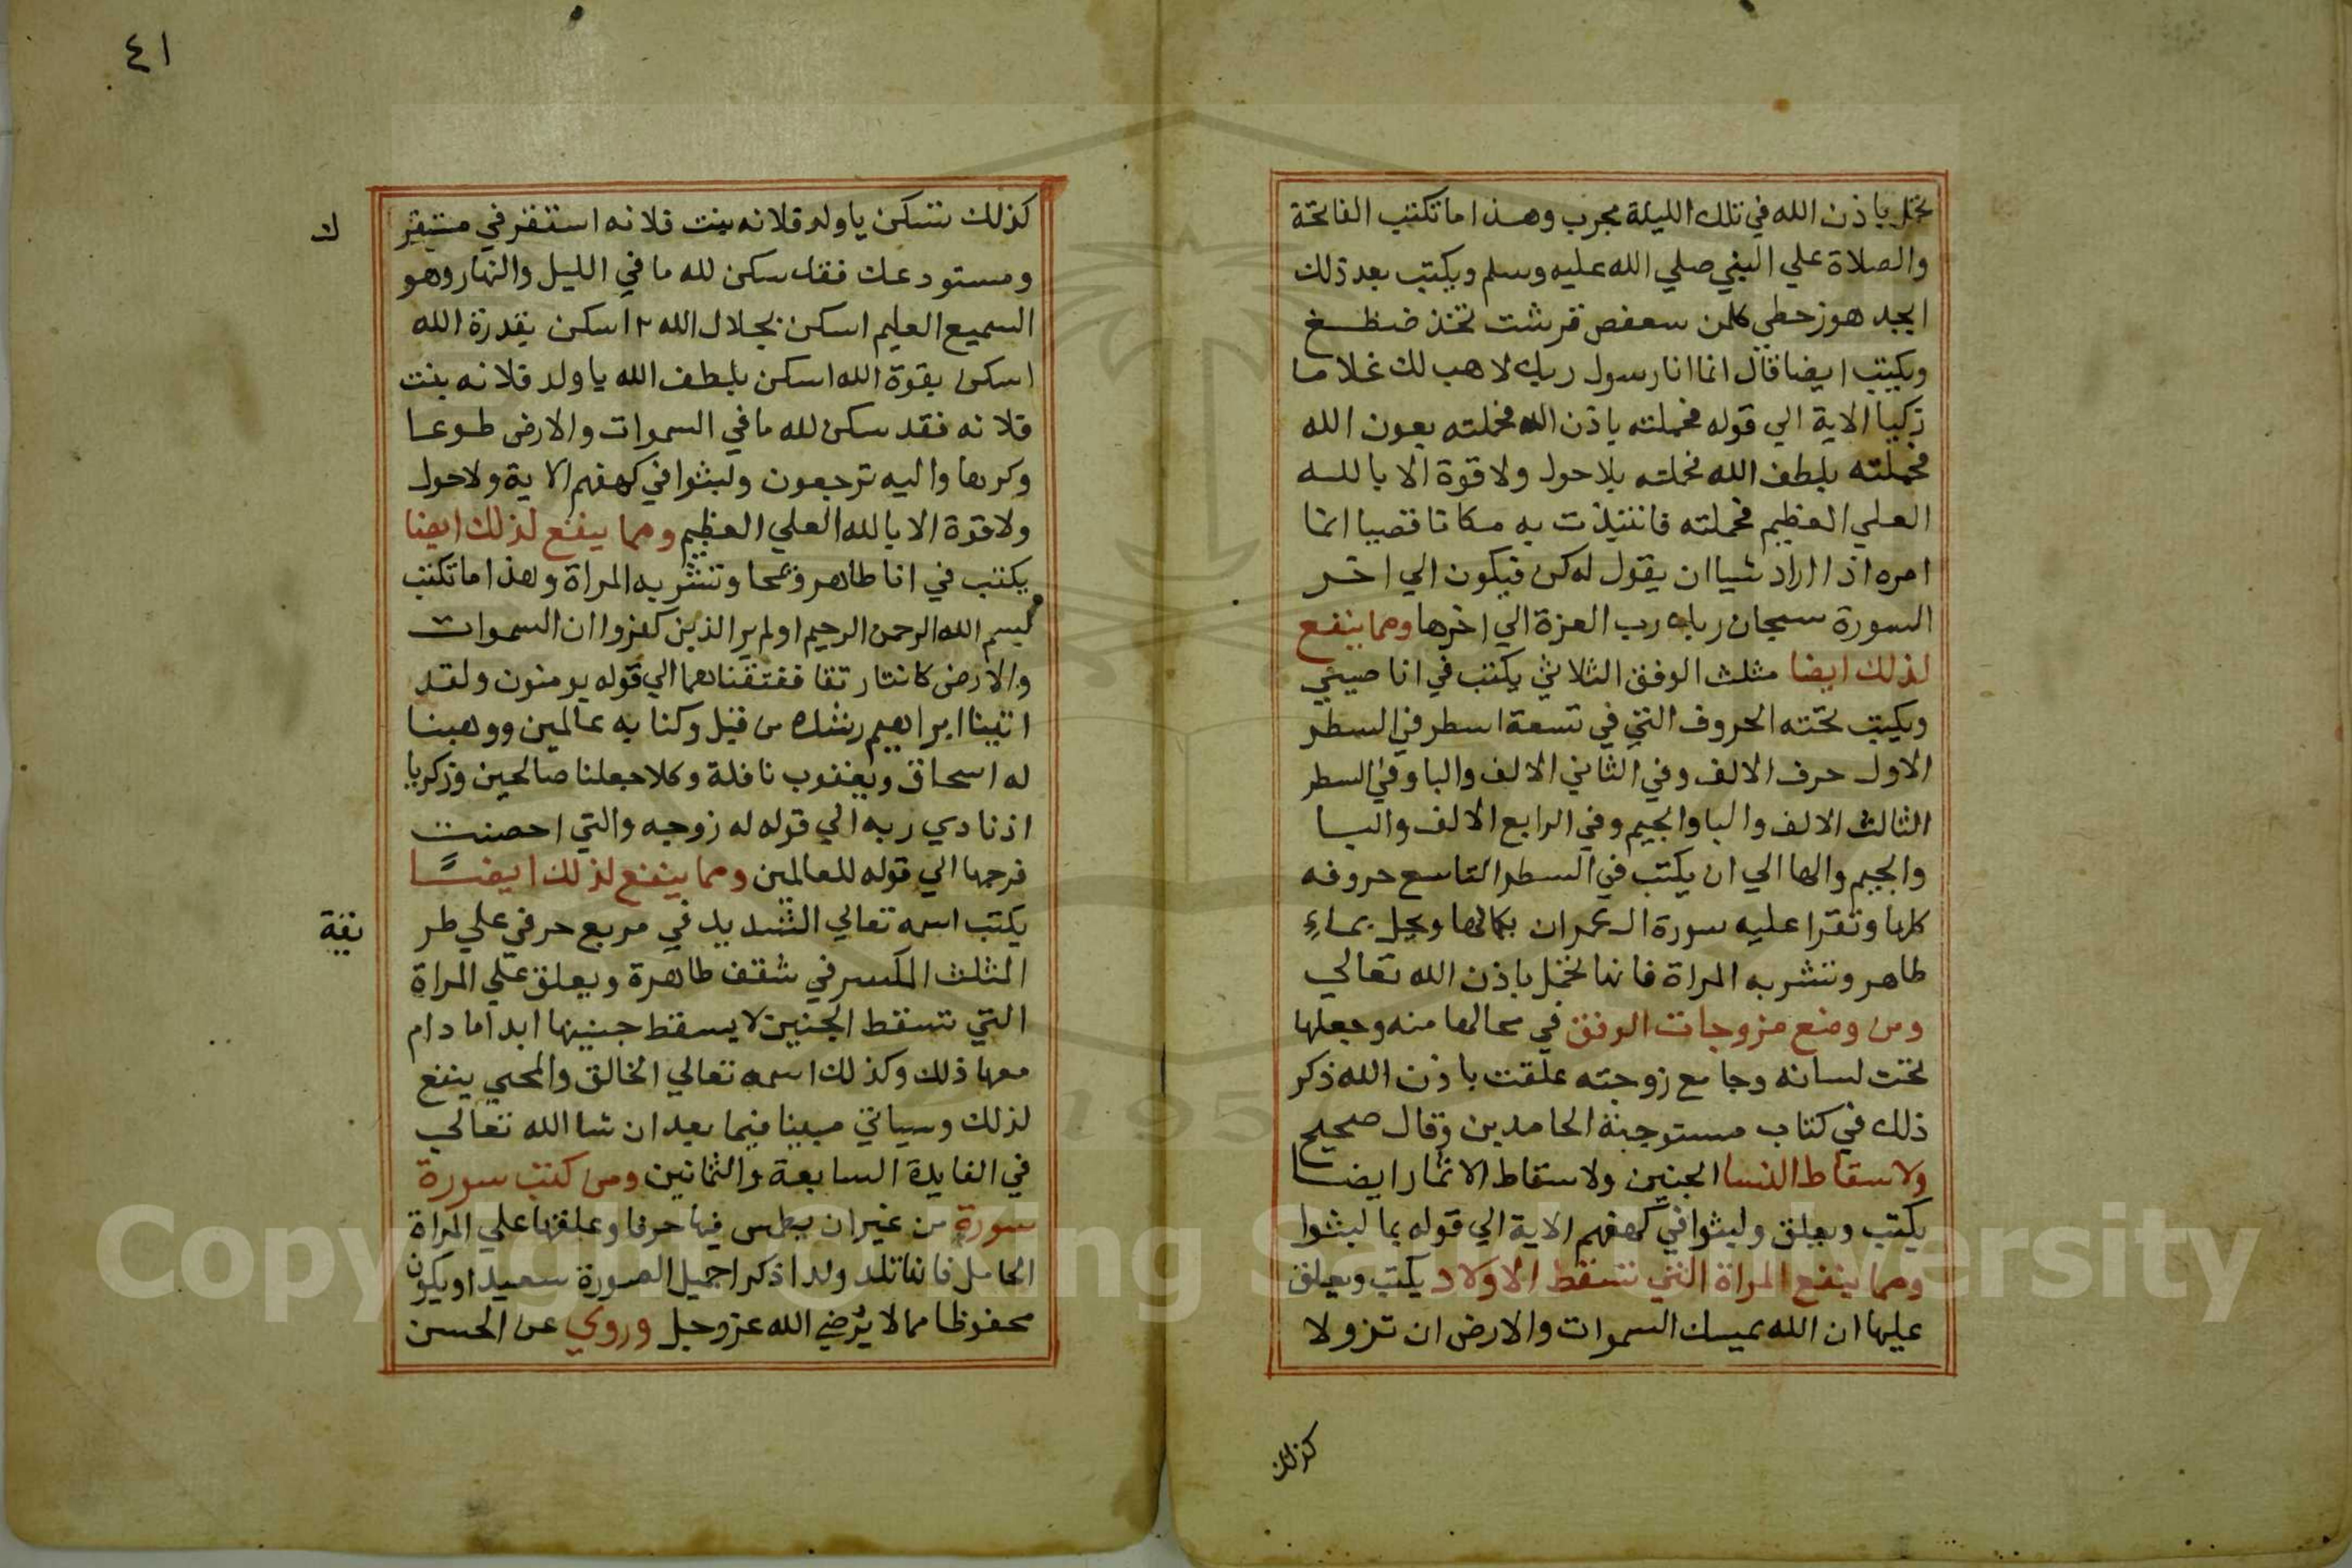 تحمل باذن الله في تلك الليلة مجرب وهذا ما تكتب الفاتحة
والصلاة علي النبي صلي الله عليه وسلم ويكتب بعد ذلك
ابجد هوز حطي كلمن سعفص قرشت تخذ ضظغ
ويكتب ايضا قال انما انا رسول ربك لاهب لك غلاما
زكيا الاية الي قوله فحملته باذن الله فحملته بعون الله
فحملته بلطف الله فحملته بلا حول ولا قوة الا بالله
العلي العظيم فحملته فانتبذت به مكانا قصيا انما
امره اذا اراد شيا ان يقول له كن فيكون الي اخر
السورة سبحان ربك رب العزة الي اخرها ومما ينفع
لذلك ايضا مثلث الوفق الثلاثي يكتب في انا صيني
ويكتب تحته الحروف التي في تسعة اسطر في السطر
الاول حرف الالف وفي الثاني الالف والبا وفي السطر
الثالث الالف والبا والجيم وفي الرابع الالف والبا
والجيم والها الي ان يكتب في السطر التاسع حروفه
كلها وتقرا عليه سورة ال عمران بكمالها ويحل بماء
طاهر وتشربه المراة فانها تحمل باذن الله تعالي
ومن وضع مزوجات الوفق في محالها منه وجعلها
تحت لسانه وجامع زوجته علقت باذن الله ذكر
ذلك في كتاب مستوجبة الحامدين وقال صحيح
ولاسقاط النسا الجنين ولاسقاط الاثمار ايضا
يكتب ويعلق ولبثوا في كهفهم الاية الي قوله بما لبثوا
ومما ينفع المراة التي تسقط الاولاد يكتب ويعلق
عليها ان الله يمسك السموات والارض ان تزولا
كذلك
٤١
كذلك تسكن يا ولد فلانه بنت فلانه استقر في مستقر
ك
ومستودعك فقد سكن لله ما في الليل والنهار وهو
السميع العليم اسكن بجلال الله ٢ اسكن بقدرة الله
اسكن بقوة الله اسكن بلطف الله يا ولد فلانه بنت
فلانه فقد سكن لله ما في السموات والارض طوعا
وكرها واليه ترجعون ولبثوا في كهفهم الاية ولا حول
ولا قوة الا بالله العلي العظيم ومما ينفع لذلك ايضا
يكتب في انا طاهر ويمحا وتشربه المراة وهذا ما تكتب
بسم الله الرحمن الرحيم اولم ير الذين كفروا ان السموات
والارض كانتا رتقا ففتقناهما الي قوله يومنون ولقد
اتينا ابراهيم رشده من قبل وكنا به عالمين ووهبنا
له اسحاق ويعقوب نافلة وكلا جعلنا صالحين وزكريا
اذ نادي ربه الي قوله له زوجه والتي احصنت
فرجها الي قوله للعالمين ومما ينفع لذلك ايضًا
يكتب اسمه تعالي الشديد في مربع حرفي علي طر
يقة
المثلث المكسر في شقف طاهرة ويعلق علي المراة
التي تسقط الجنين لا يسقط جنينها ابدا ما دام
معها ذلك وكذلك اسمه تعالي الخالق والمحي ينفع
لذلك وسياتي مبينا فيما بعد ان شا الله تعالي
في الفايدة السابعة والثمانين ومن كتب سورة
سورة من غير ان يطمس فيها حرفا وعلقها علي المراة
الحامل فانها تلد ولدا ذكرا جميل الصورة سعيدا ويكون
محفوظا مما لا يُرضي الله عز وجل وروي عن الحسن
Copyright © King Saud University
195